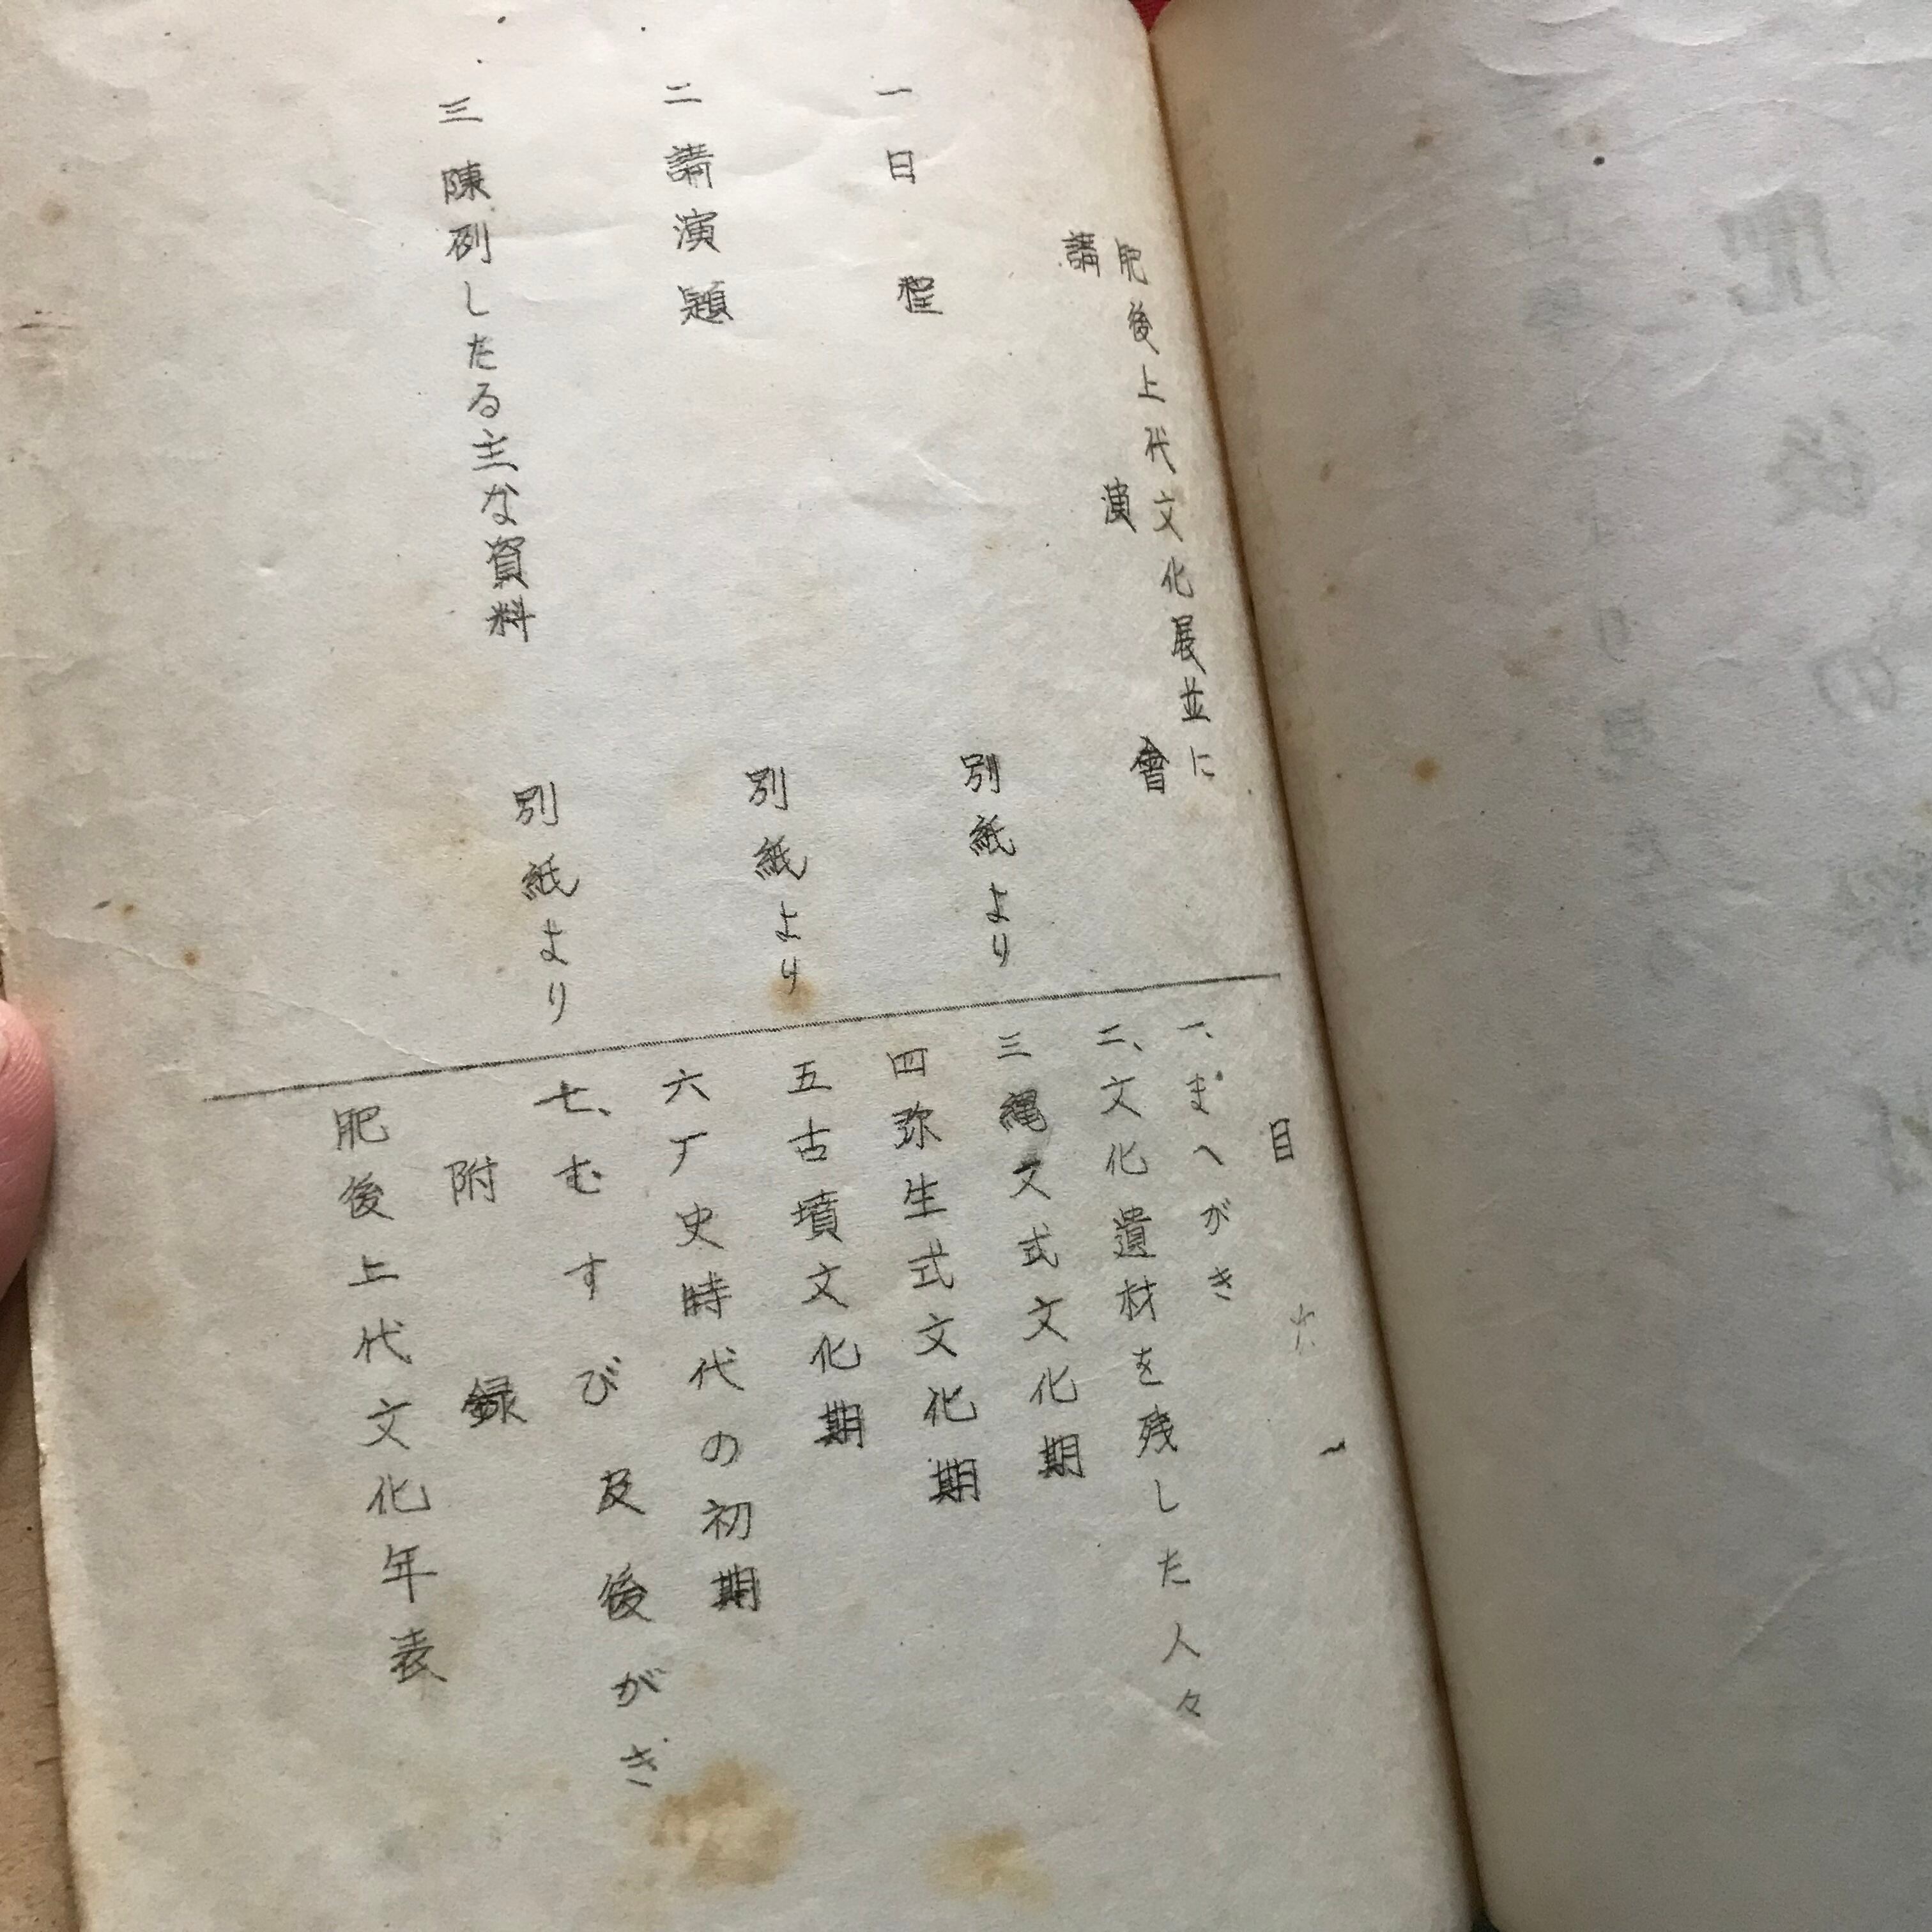 肥後上代文化展並に
講演會
一 日程 別紙より
二 講演題 別紙より
三 陳列したる主な資料 別紙より
目次
一、まへがき
二、文化遺材を残した人々
三 縄文式文化期
四 弥生式文化期
五 古墳文化期
六 厂史時代の初期
七、むすび及後がき
附録
肥後上代文化年表